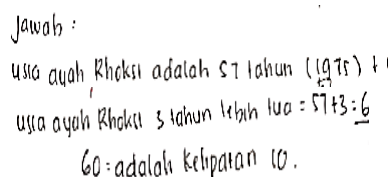 Jawab :
usia ayah Rhoksi adalah 57 tahun (1975) +
usia ayah Rhoksi 3 tahun lebih tua = 57+3 = 6
60 = adalah kelipatan 10.